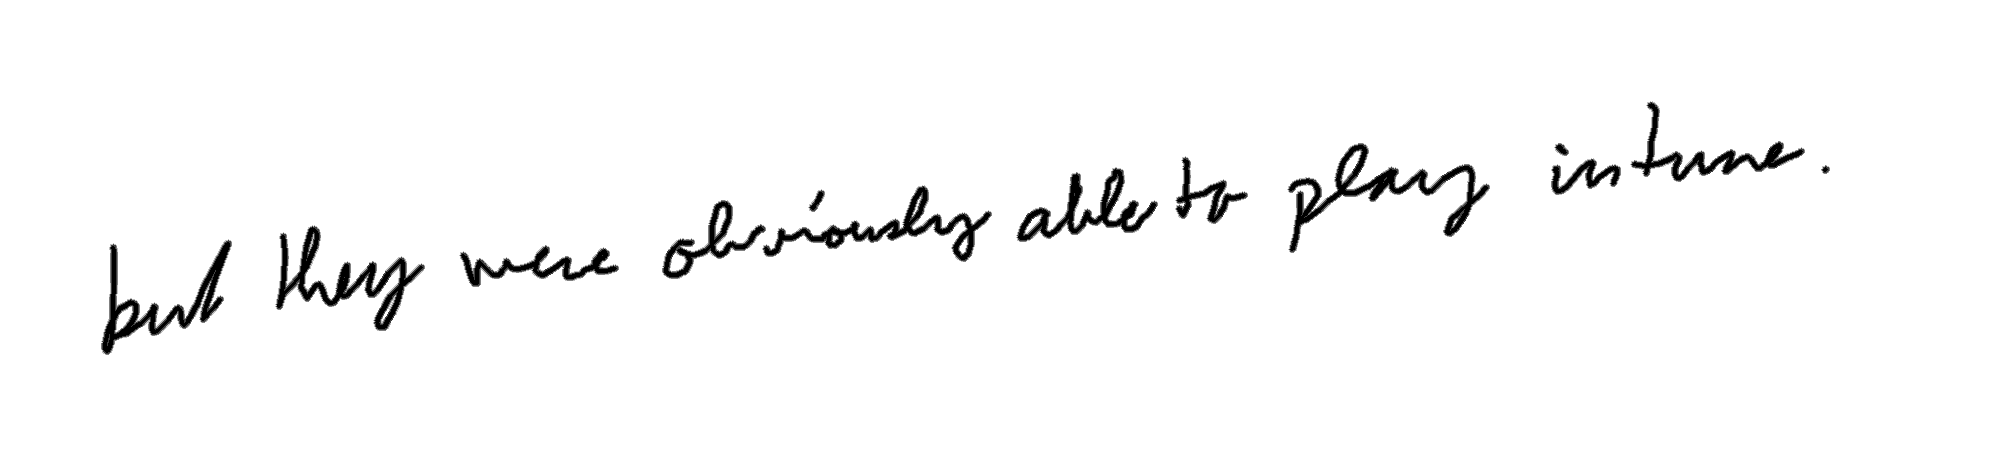 but they were obviously able to play in tune.